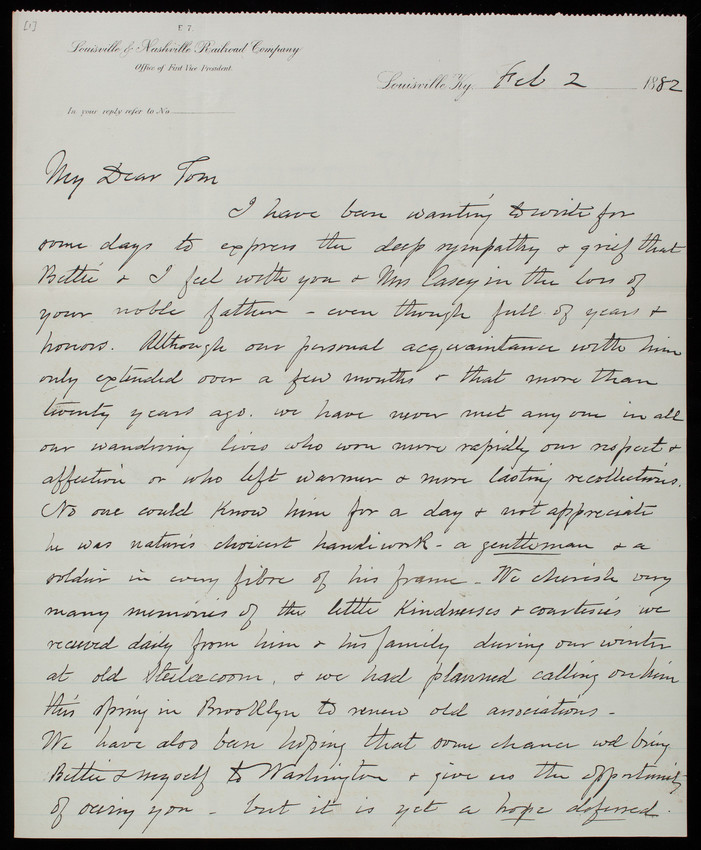 [1]
E 7.
Louisville & Nashville Railroad Company
Office of First Vice President.
Louisville Ky. Feb 2 1882
In your reply refer to No
My Dear Tom
I have been wanting to write for
some days to express the deep sympathy & grief that
Bettie & I feel with you & Mrs Casey in the loss of
your noble father - even though full of years &
honors. Although our personal acquaintance with him
only extended over a few months & that more than
twenty years ago. we have never met any one in all
our wandring lives who won more rapidly our respect &
affection or who left warmer & more lasting recollections.
No one could know him for a day & not appreciate
he was nature's choicest handiwork - a gentleman & a
soldier in every fibre of his frame - We cherish very
many memories of the little kindnesses & courtesies we
received daily from him & his family during our winter
at old Steilacoom, & we had planned calling on him
this spring in Brooklyn to renew old associations -
We have also been hoping that some chance wd bring
Bettie & myself to Washington & give us the opportunity
of seeing you - but it is yet a hope deferred.